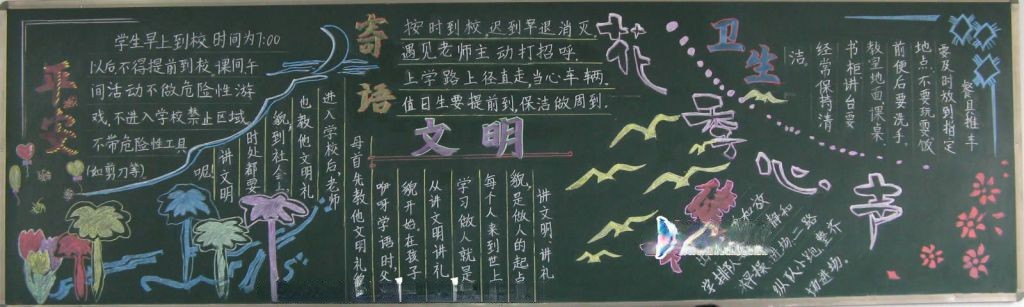 平安
学生早上到校时间为7:00
以后不得提前到校.课间午
间活动不做危险性游
戏,不进入学校禁止区域
不带危险性工具
(如剪刀等)
寄语
按时到校,迟到早退消灭
遇见老师主动打招呼.
上学路上径直走,当心车辆.
值日生要提前到,保洁做周到.
文明
讲文明、讲礼
貌,是做人的起点
每个人来到世上
学习做人就是
从讲文明讲礼
貌开始,在孩子
咿呀学语时,父
母首先教他文明礼貌
进入学校后,老师
也教他文明礼
貌,到社会上
时处都要
讲文明
呢!
花季心声
卫生
餐具推车
要及时放到指定
地点.不要玩耍,饭
前便后要洗手,
教室地面课桌
书柜讲台要
经常保持清
洁.